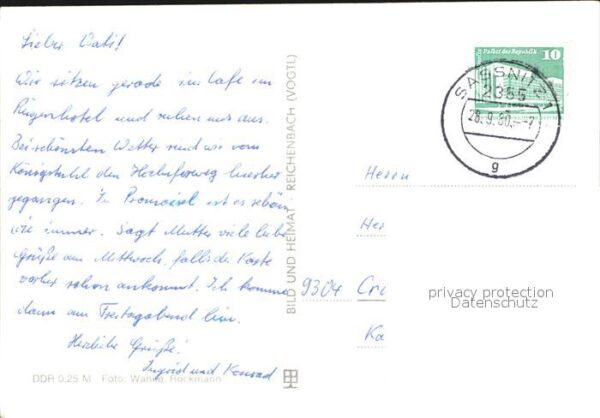 Lieber Vati!
Wir sitzen gerade im Cafe im
Rügenhotel und ruhen uns aus.
Bei schönstem Wetter sind wir vom
Königstuhl den Hochuferweg hierher
gegangen. In Promoisel ist es schön
wie immer. Sagt Mutter viele liebe
Grüße am Mittwoch, falls die Karte
vorher schon ankommt. Ich komme
dann am Freitagabend
Herzliche Grüße!
Ingrid und Konrad
DDR 0,25 M Foto: Hockmann
BILD UND HEIMAT REICHENBACH (VOGTL)
Palast der Republik 10
SASSNITZ 1
2355
28.9.80
g
Herrn
Her
9304 Cr
Ka
privacy protection
Datenschutz